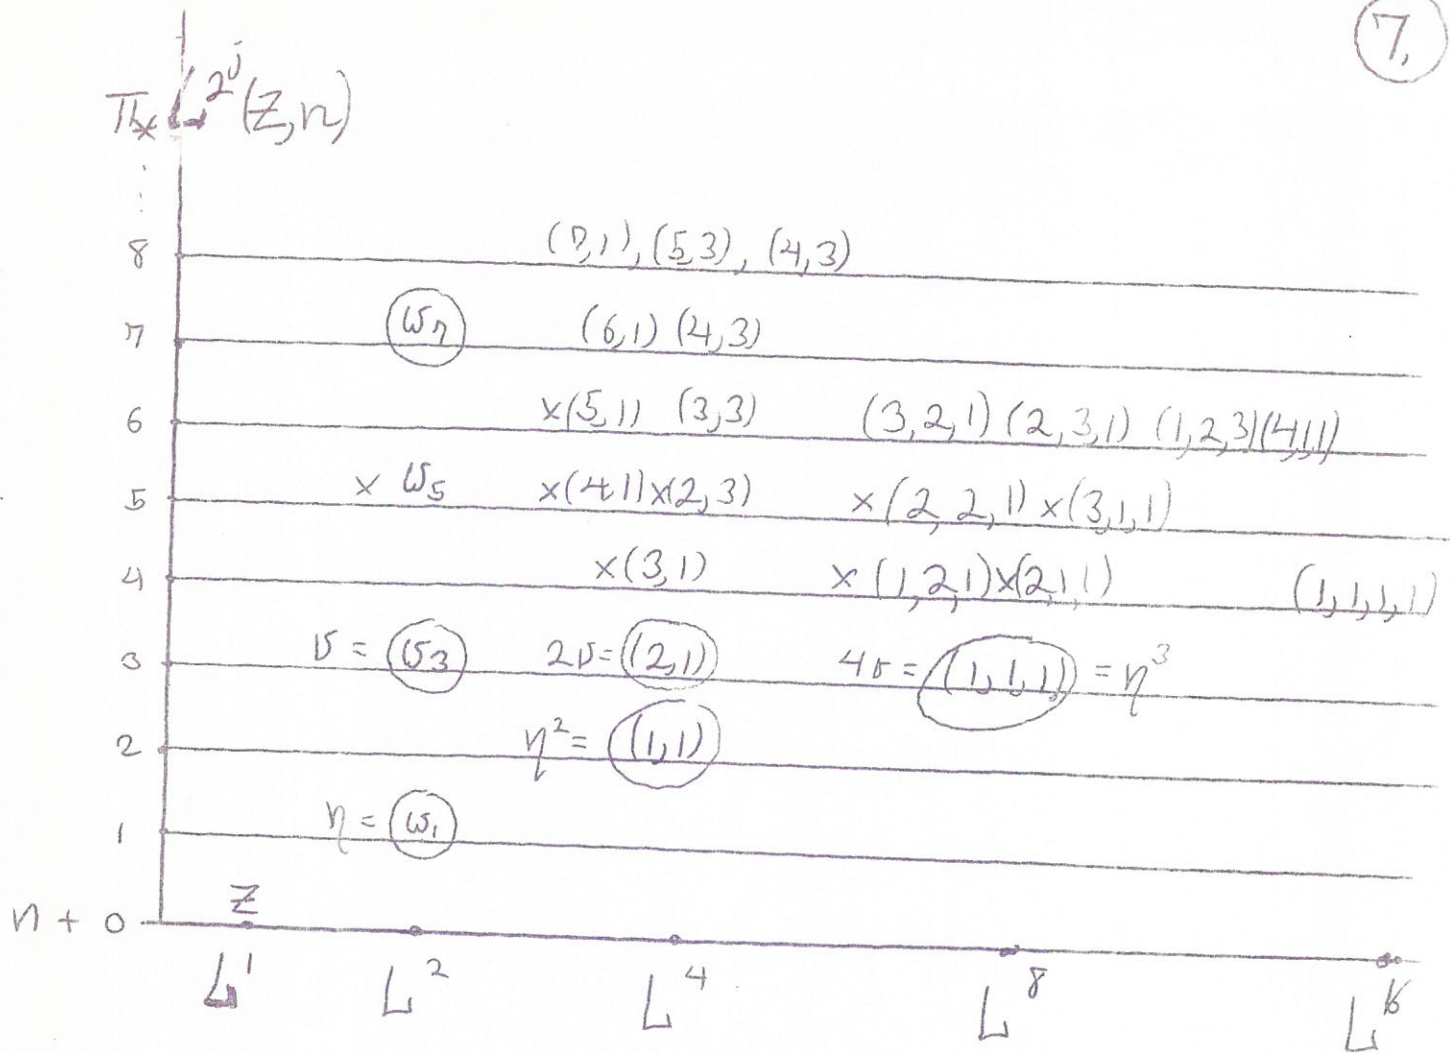 7.
π* L^{2^j}(Z,n)
8 (7,1), (5,3), (4,3)
7 ω₇ (6,1) (4,3)
6 ×(5,1) (3,3) (3,2,1) (2,3,1) (1,2,3) (4,1,1)
5 × ω₅ ×(4,1) ×(2,3) ×(2,2,1) ×(3,1,1)
4 ×(3,1) ×(1,2,1) ×(2,1,1) (1,1,1,1)
3 ν = ω₃ 2ν = (2,1) 4ν = (1,1,1) = η³
2 η² = (1,1)
1 η = ω₁
Z
n + 0
L¹ L² L⁴ L⁸ L¹⁶